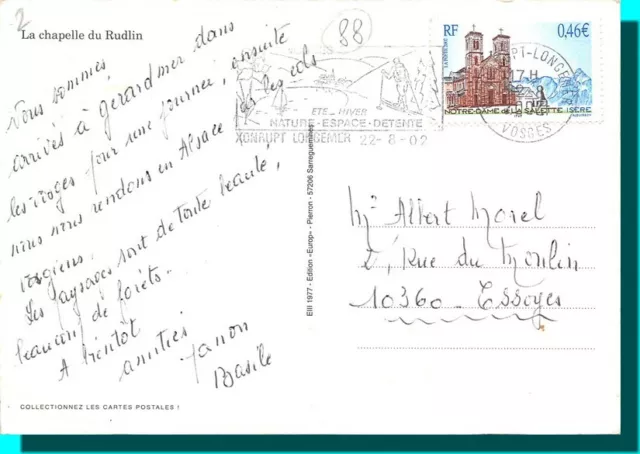 2
La chapelle du Rudlin
88
Nous sommes
arrivés à gérardmer dans
les vosges pour une journée, ensuite
nous nous rendons en Alsace par les cols
vosgiens.
Les paysages sont de toute beauté,
beaucoup de forêts..
A bientôt
amitiés
Basile
COLLECTIONNEZ LES CARTES POSTALES !
Elll 1977 - Edition «Europ» - Pierron - 57206 Sarreguemines
ETE - HIVER
NATURE-ESPACE-DETENTE
XONRUPT LONGEMER 22-8-02
RF 0,46€
LA POSTE 2002
NOTRE-DAME DE LA SALETTE ISÈRE
PT-LONGEMER
17 H
VOSGES
Mr Albert Morel
2, Rue du Moulin
10360 - Essoyes